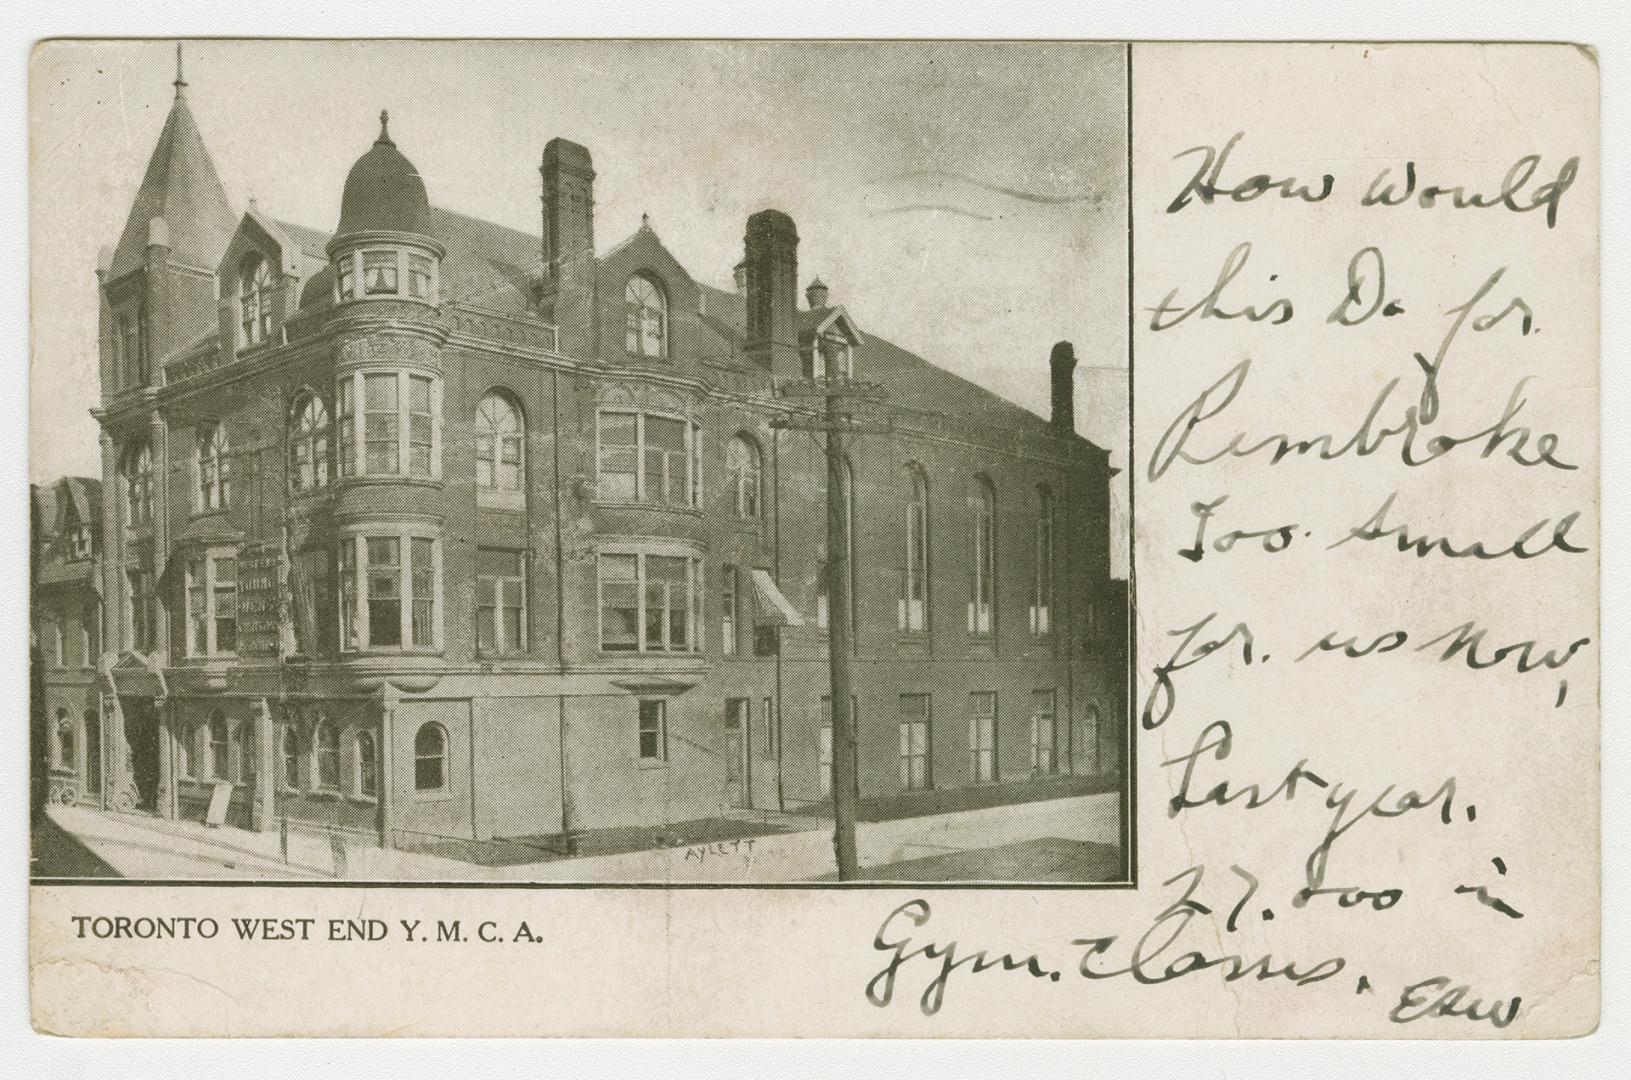 How would
this Do for.
Pembroke
Too. Small
for. us now,
Last year.
27.000 in
Gym. Classes.
EHW
AYLETT
TORONTO WEST END Y. M. C. A.